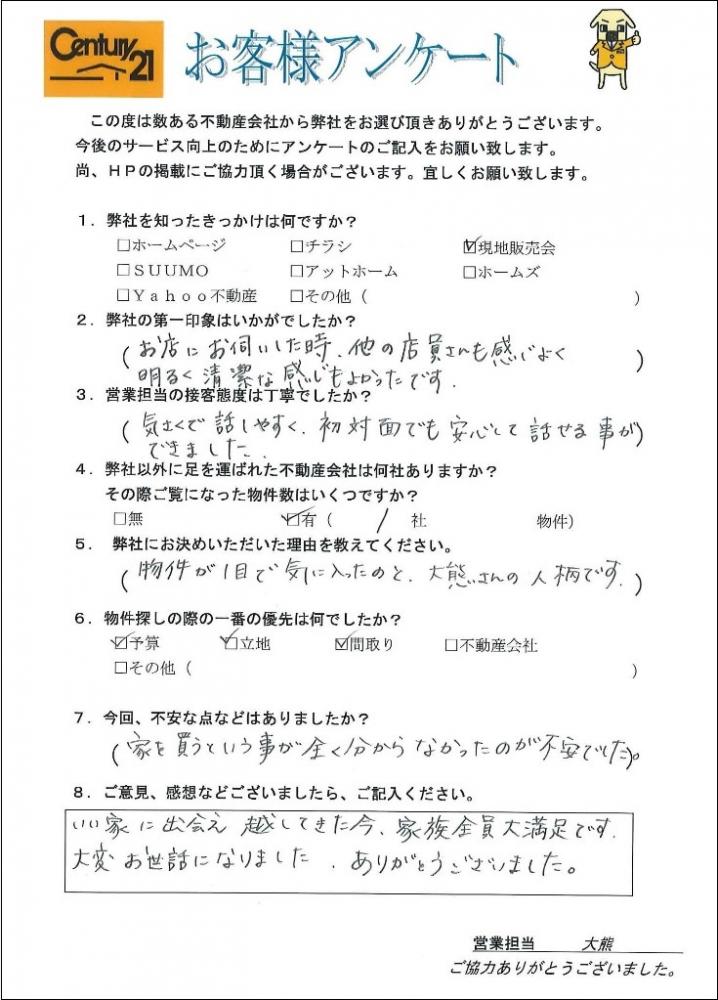 Century 21
お客様アンケート
この度は数ある不動産会社から弊社をお選び頂きありがとうございます。
今後のサービス向上のためにアンケートのご記入をお願い致します。
尚、HPの掲載にご協力頂く場合がございます。宜しくお願い致します。
1．弊社を知ったきっかけは何ですか？
□ホームページ □チラシ ☑現地販売会
□SUUMO □アットホーム □ホームズ
□Yahoo不動産 □その他（ ）
2．弊社の第一印象はいかがでしたか？
（お店にお伺いした時、他の店員さんも感じよく
明るく清潔な感じもよかったです．）
3．営業担当の接客態度は丁寧でしたか？
（気さくで話しやすく、初対面でも安心して話せる事が
できました．）
4．弊社以外に足を運ばれた不動産会社は何社ありますか？
その際ご覧になった物件数はいくつですか？
□無 ☑有（ 1 社 物件）
5． 弊社にお決めいただいた理由を教えてください。
（物件が1目で気に入ったのと、大熊さんの人柄です．）
6．物件探しの際の一番の優先は何でしたか？
☑予算 ☑立地 ☑間取り □不動産会社
□その他（ ）
7．今回、不安な点などはありましたか？
（家を買うという事が全く分からなかったのが不安でした。）
8．ご意見、感想などございましたら、ご記入ください。
いい家に出会え 越してきた今、家族全員大満足です．
大変お世話になりました．ありがとうございました。
営業担当 大熊
ご協力ありがとうございました。